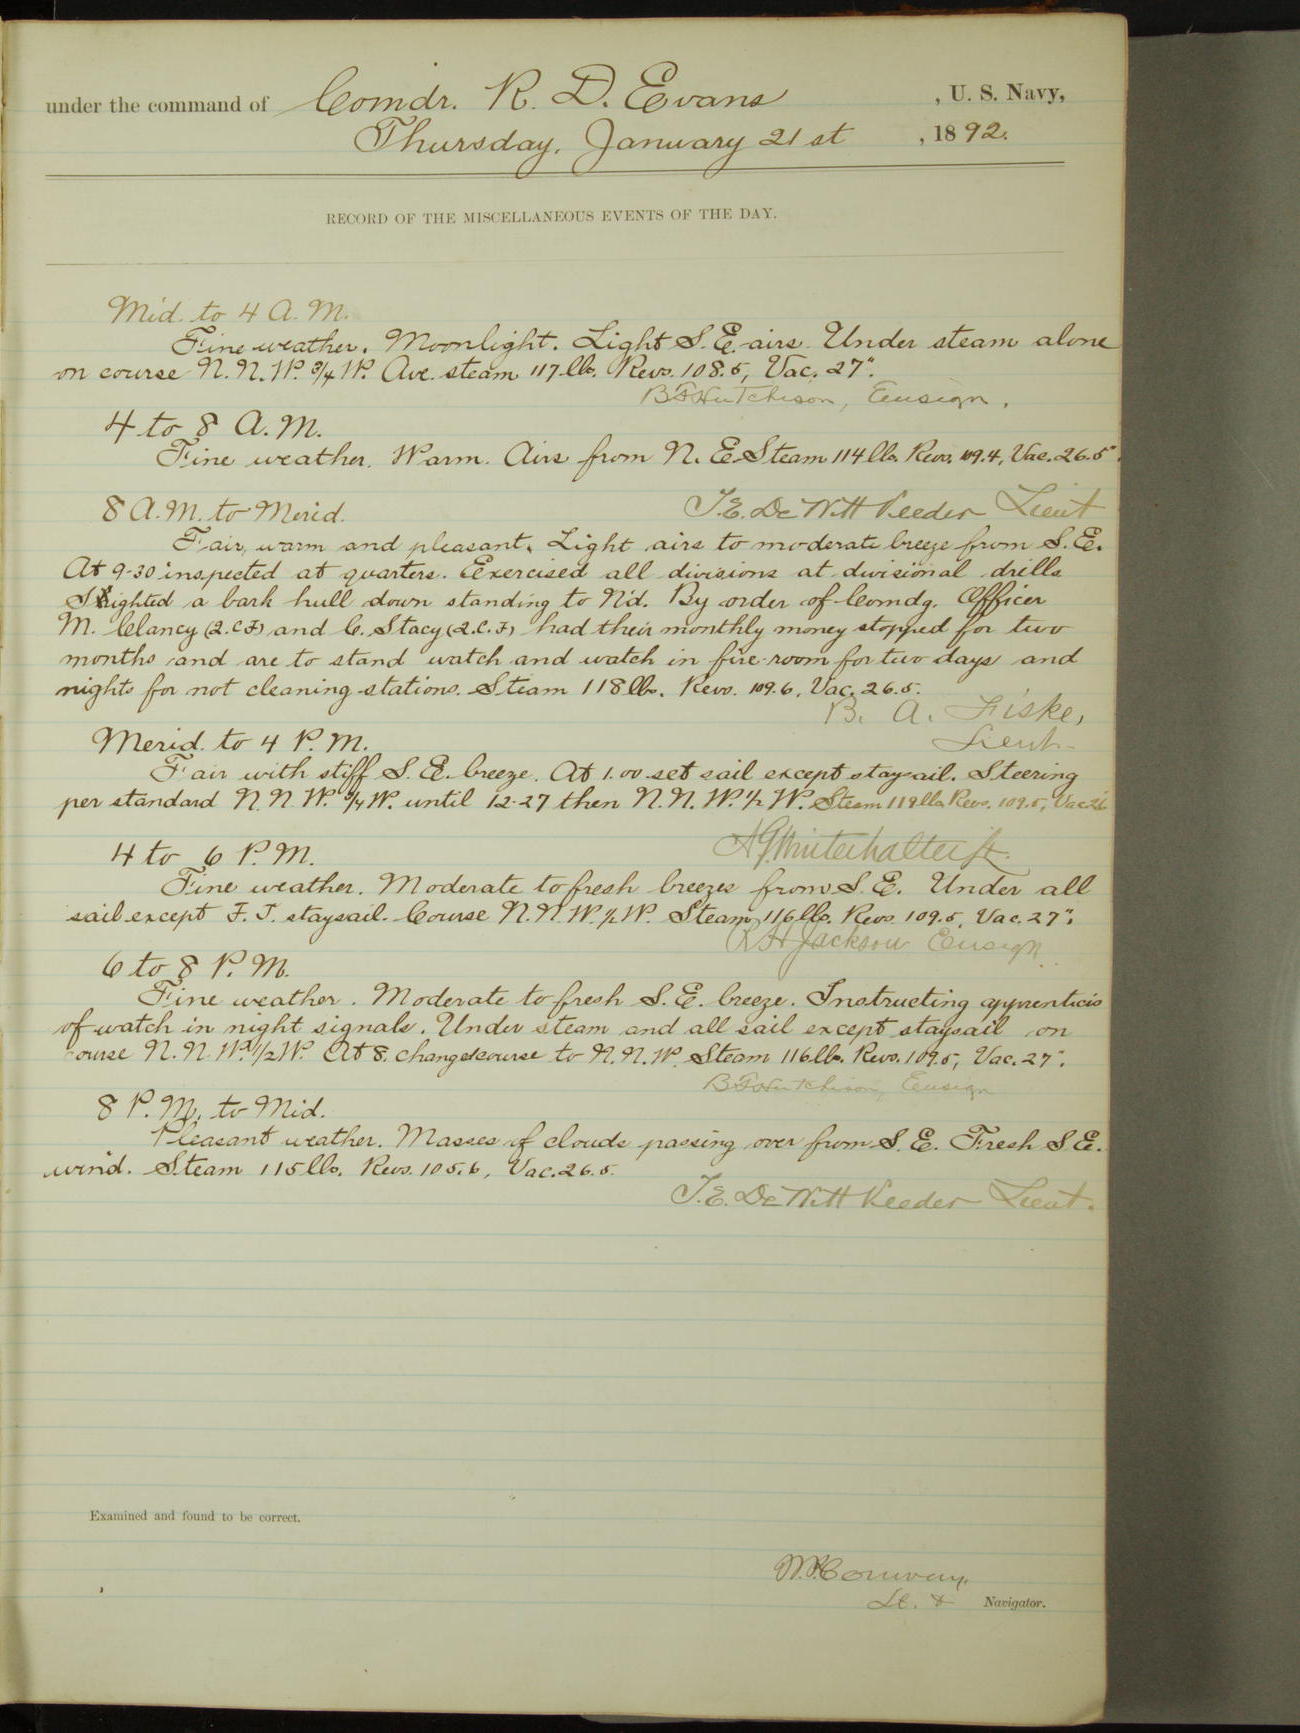 under the command of Comdr. R. D. Evans , U. S. Navy,
Thursday, January 21st , 1892.
RECORD OF THE MISCELLANEOUS EVENTS OF THE DAY.
Mid. to 4 A. M.
Fine weather. Moonlight. Light S. E. airs. Under steam alone
on course N. N. W. 3/4 W. Ave. steam 117 lbs. Revs. 108.5, Vac. 27".
B F Hutchison, Ensign.
4 to 8 A. M.
Fine weather. Warm. Airs from N. E. Steam 114 lbs. Revs. 109.4, Vac. 26.5".
8 A. M. to Merid. T. E. De Witt Veeder Lieut
Fair, warm and pleasant. Light airs to moderate breeze from S. E.
At 9-30 inspected at quarters. Exercised all divisions at divisional drills
Sighted a bark hull down standing to N'd. By order of Comdg. Officer
M. Clancy (2.C.F) and C. Stacy (2.C.F) had their monthly money stopped for two
months and are to stand watch and watch in fire-room for two days and
nights for not cleaning stations. Steam 118 lbs. Revs. 109.6, Vac. 26.5.
B. A. Fiske,
Merid. to 4 P. M. Lieut.
Fair with stiff S. E. breeze. At 1.00 set sail except staysail. Steering
per standard N N W. 3/4 W. until 12-27 then N. N. W. 1/2 W. Steam 119 lbs Revs. 109.5, Vac 26
4 to 6 P. M. A G Winterhalter Lt.
Fine weather. Moderate to fresh breezes from S. E. Under all
sail except F. T. staysail. Course N. N. W. 1/2 W. Steam 116 lbs. Revs. 109.5, Vac. 27".
R H Jackson Ensign
6 to 8 P. M.
Fine weather. Moderate to fresh S. E. breeze. Instructing apprentices
of watch in night signals. Under steam and all sail except staysail on
course N. N. W. 1/2 W. At 8. changed course to N. N. W. Steam 116 lbs. Revs. 109.5, Vac. 27".
B F Hutchison, Ensign
8 P. M. to Mid.
Pleasant weather. Masses of clouds passing over from S. E. Fresh S E.
wind. Steam 115 lbs. Revs. 105.6, Vac. 26.5.
T. E. De Witt Veeder Lieut.
Examined and found to be correct.
W. P. Conway,
Lt. & Navigator.